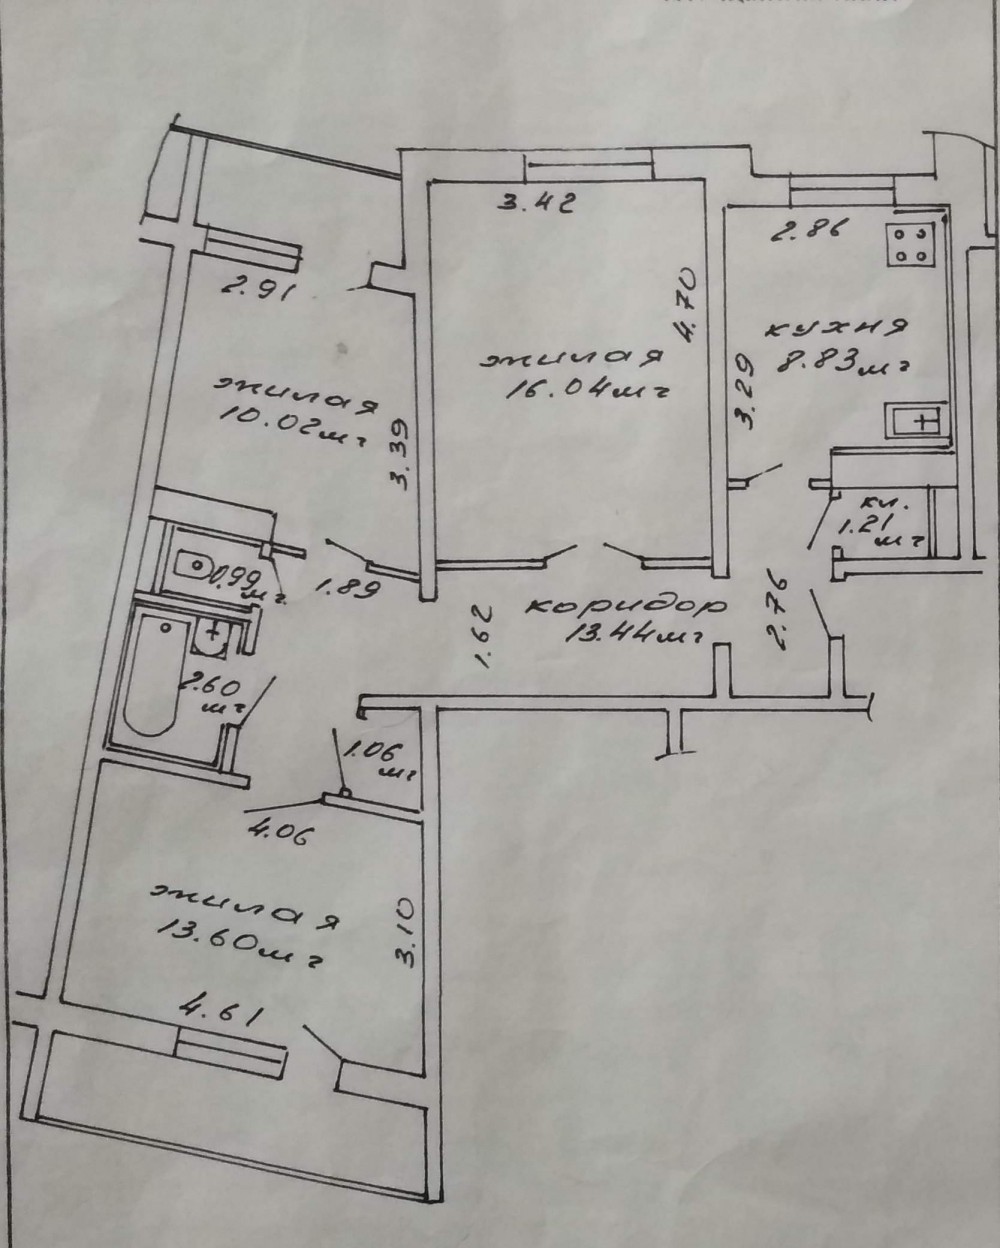 3.42
2.86
2.91
4.70
кухня
8.83м²
жилая
16.04м²
3.29
жилая
10.02м²
3.39
кл.
1.21
м²
0.99
м²
1.89
коридор
13.44м²
1.62
2.76
2.60
м²
1.06
м²
4.06
жилая
13.60м²
3.10
4.61